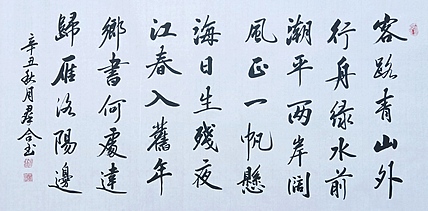 客路青山外
行舟绿水前
潮平两岸阔
風正一帆懸
海日生残夜
江春入舊年
鄉書何處達
歸雁洛陽邊
辛丑秋月君合书